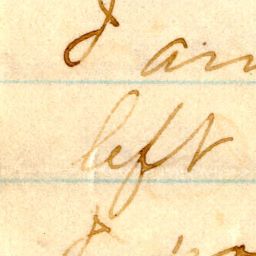 I am
left
I